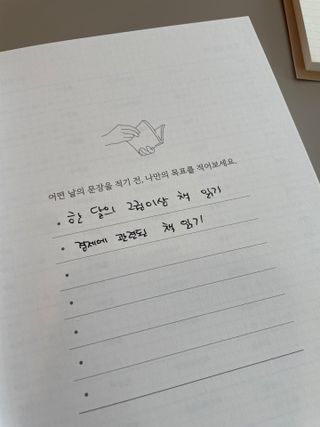 어떤 날의 문장을 적기 전, 나만의 목표를 적어보세요.
한 달의 2권이상 책 읽기
경제에 관련된 책 읽기